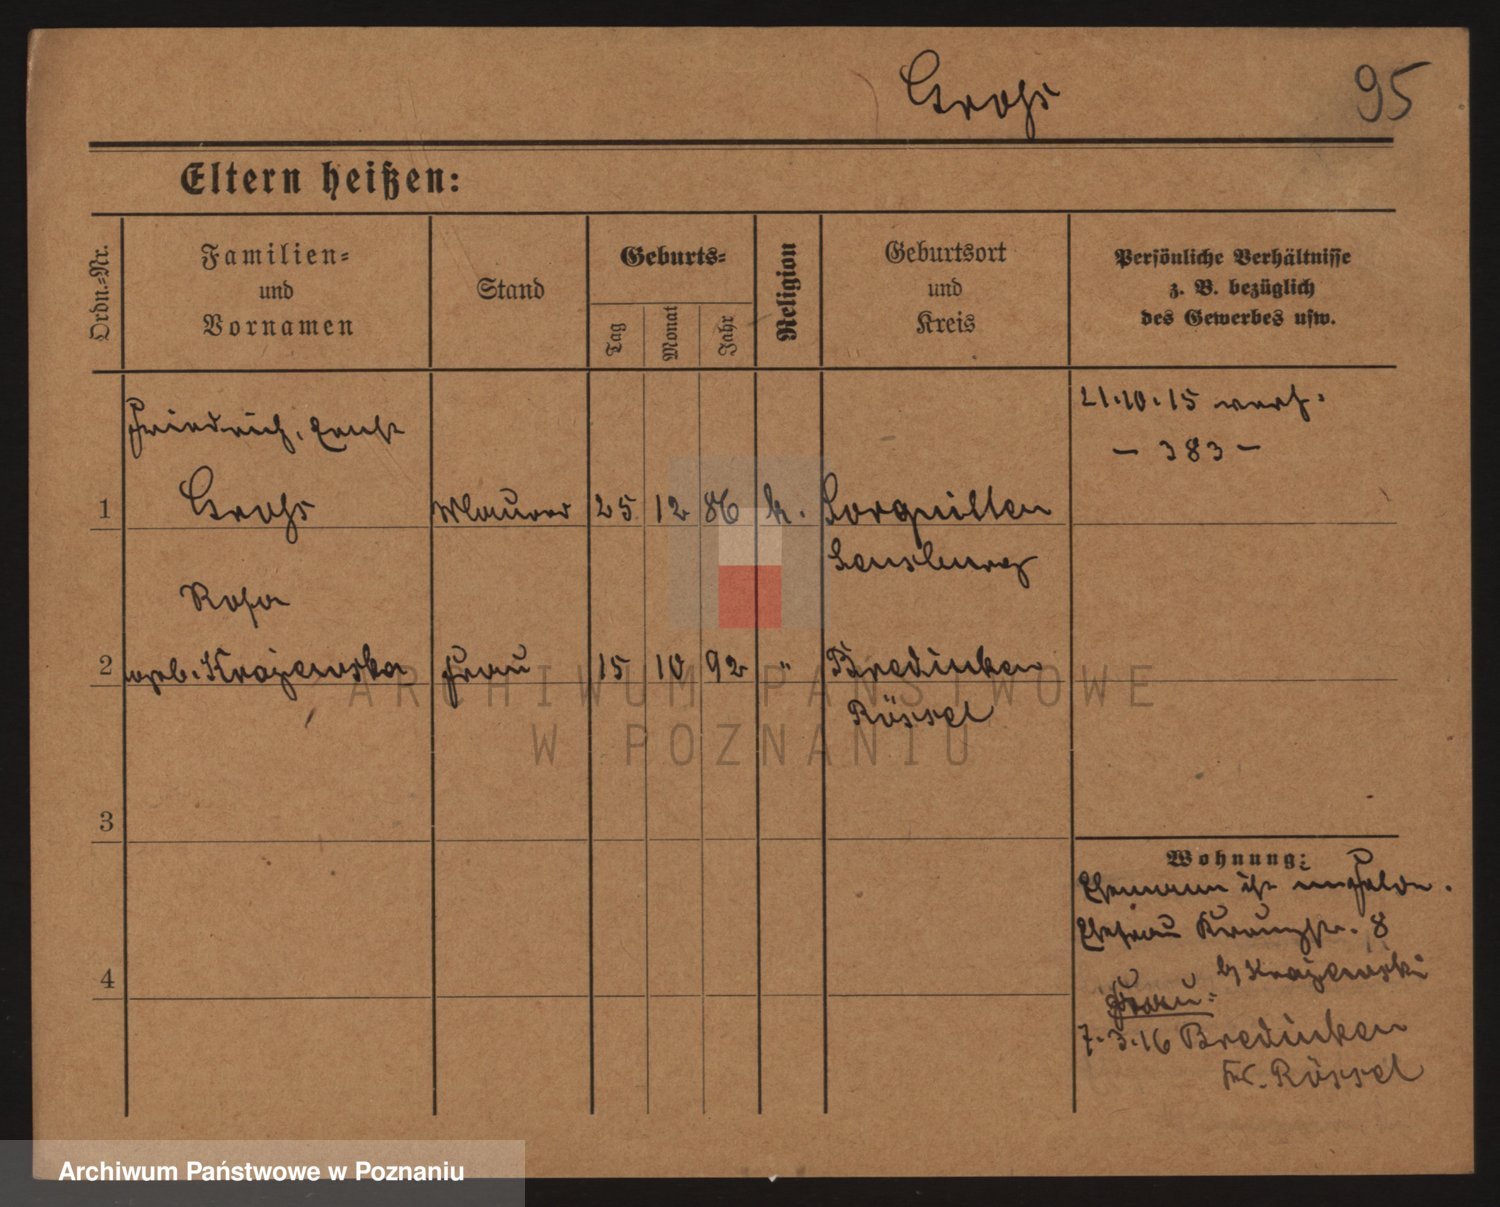 Grohs
95
Eltern heißen:
Ordn.-Nr.
Familien-
und
Vornamen
Stand
Geburts-
Tag
Monat
Jahr
Religion
Geburtsort
und
Kreis
Persönliche Verhältnisse
z. B. bezüglich
des Gewerbes usw.
21.10.15 verh.
— 383 —
Friedrich, Ernst
1 Grohs Maurer 25 12 86 k. Sorquitten
Sensburg
Rosa
2 geb. Krajewska Frau 15 10 92 " Bredinken
Rössel
3
4
Wohnung:
Ehemann ist im Felde.
Ehefrau Kreuzstr. 8
b/ Krajewski
Frau:
7.3.16 Bredinken
Kr. Rössel
ARCHIWUM PAŃSTWOWE
W POZNANIU
Archiwum Państwowe w Poznaniu